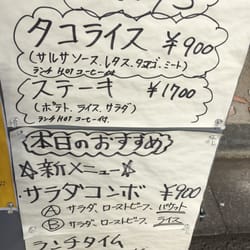 タコライス ¥900
(サルサソース、レタス、タマゴ、ミート)
ランチ HOT コーヒー付
ステーキ ¥1700
(ポテト、ライス、サラダ)
ランチ HOT コーヒー付
本日のおすすめ
☆新メニュー☆
サラダコンボ ¥900
Ⓐ サラダ、ローストビーフ、バケット
Ⓑ サラダ、ローストビーフ、ライス
ランチタイム